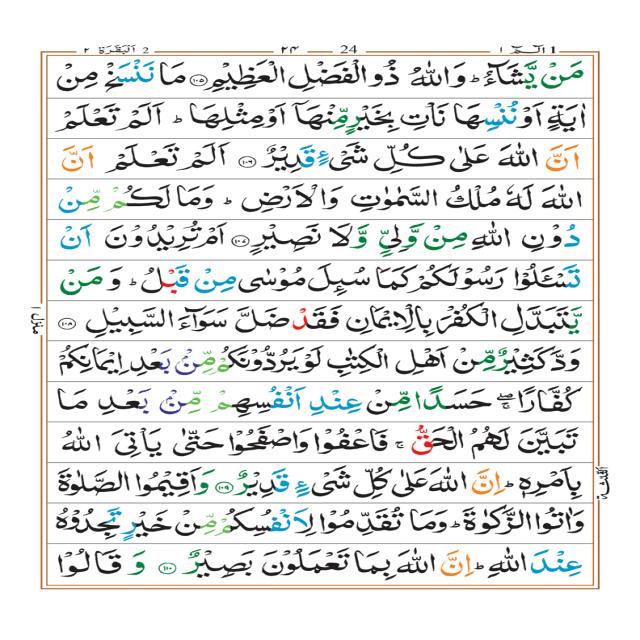 2 اَلْبَقَرَة ٢ ٢٤ 24 1 الٓـمّٓ ١
مَنْ يَّشَآءُ ؕ وَاللّٰهُ ذُو الْفَضْلِ الْعَظِيْمِ ﴿۱۰۵﴾ مَا نَنْسَخْ مِنْ
اٰيَةٍ اَوْ نُنْسِهَا نَاْتِ بِخَيْرٍ مِّنْهَاۤ اَوْ مِثْلِهَا ؕ اَلَمْ تَعْلَمْ
اَنَّ اللّٰهَ عَلٰى كُلِّ شَىْءٍ قَدِيْرٌ ﴿۱۰۶﴾ اَلَمْ تَعْلَمْ اَنَّ
اللّٰهَ لَهٗ مُلْكُ السَّمٰوٰتِ وَالْاَرْضِ ؕ وَمَا لَكُمْ مِّنْ
دُوْنِ اللّٰهِ مِنْ وَّلِيٍّ وَّلَا نَصِيْرٍ ﴿۱۰۷﴾ اَمْ تُرِيْدُوْنَ اَنْ
تَسْـَٔلُوْا رَسُوْلَكُمْ كَمَا سُىِٕلَ مُوْسٰى مِنْ قَبْلُ ؕ وَمَنْ
يَّتَبَدَّلِ الْكُفْرَ بِالْاِيْمَانِ فَقَدْ ضَلَّ سَوَآءَ السَّبِيْلِ ﴿۱۰۸﴾
وَدَّ كَثِيْرٌ مِّنْ اَهْلِ الْكِتٰبِ لَوْ يَرُدُّوْنَكُمْ مِّنْۢ بَعْدِ اِيْمَانِكُمْ
كُفَّارًا ۖۚ حَسَدًا مِّنْ عِنْدِ اَنْفُسِهِمْ مِّنْۢ بَعْدِ مَا
تَبَيَّنَ لَهُمُ الْحَقُّ ۚ فَاعْفُوْا وَاصْفَحُوْا حَتّٰى يَاْتِىَ اللّٰهُ
بِاَمْرِهٖ ؕ اِنَّ اللّٰهَ عَلٰى كُلِّ شَىْءٍ قَدِيْرٌ ﴿۱۰۹﴾ وَاَقِيْمُوا الصَّلٰوةَ
وَاٰتُوا الزَّكٰوةَ ؕ وَمَا تُقَدِّمُوْا لِاَنْفُسِكُمْ مِّنْ خَيْرٍ تَجِدُوْهُ
عِنْدَ اللّٰهِ ؕ اِنَّ اللّٰهَ بِمَا تَعْمَلُوْنَ بَصِيْرٌ ﴿۱۱۰﴾ وَقَالُوْا
منزل ١
الثلثة